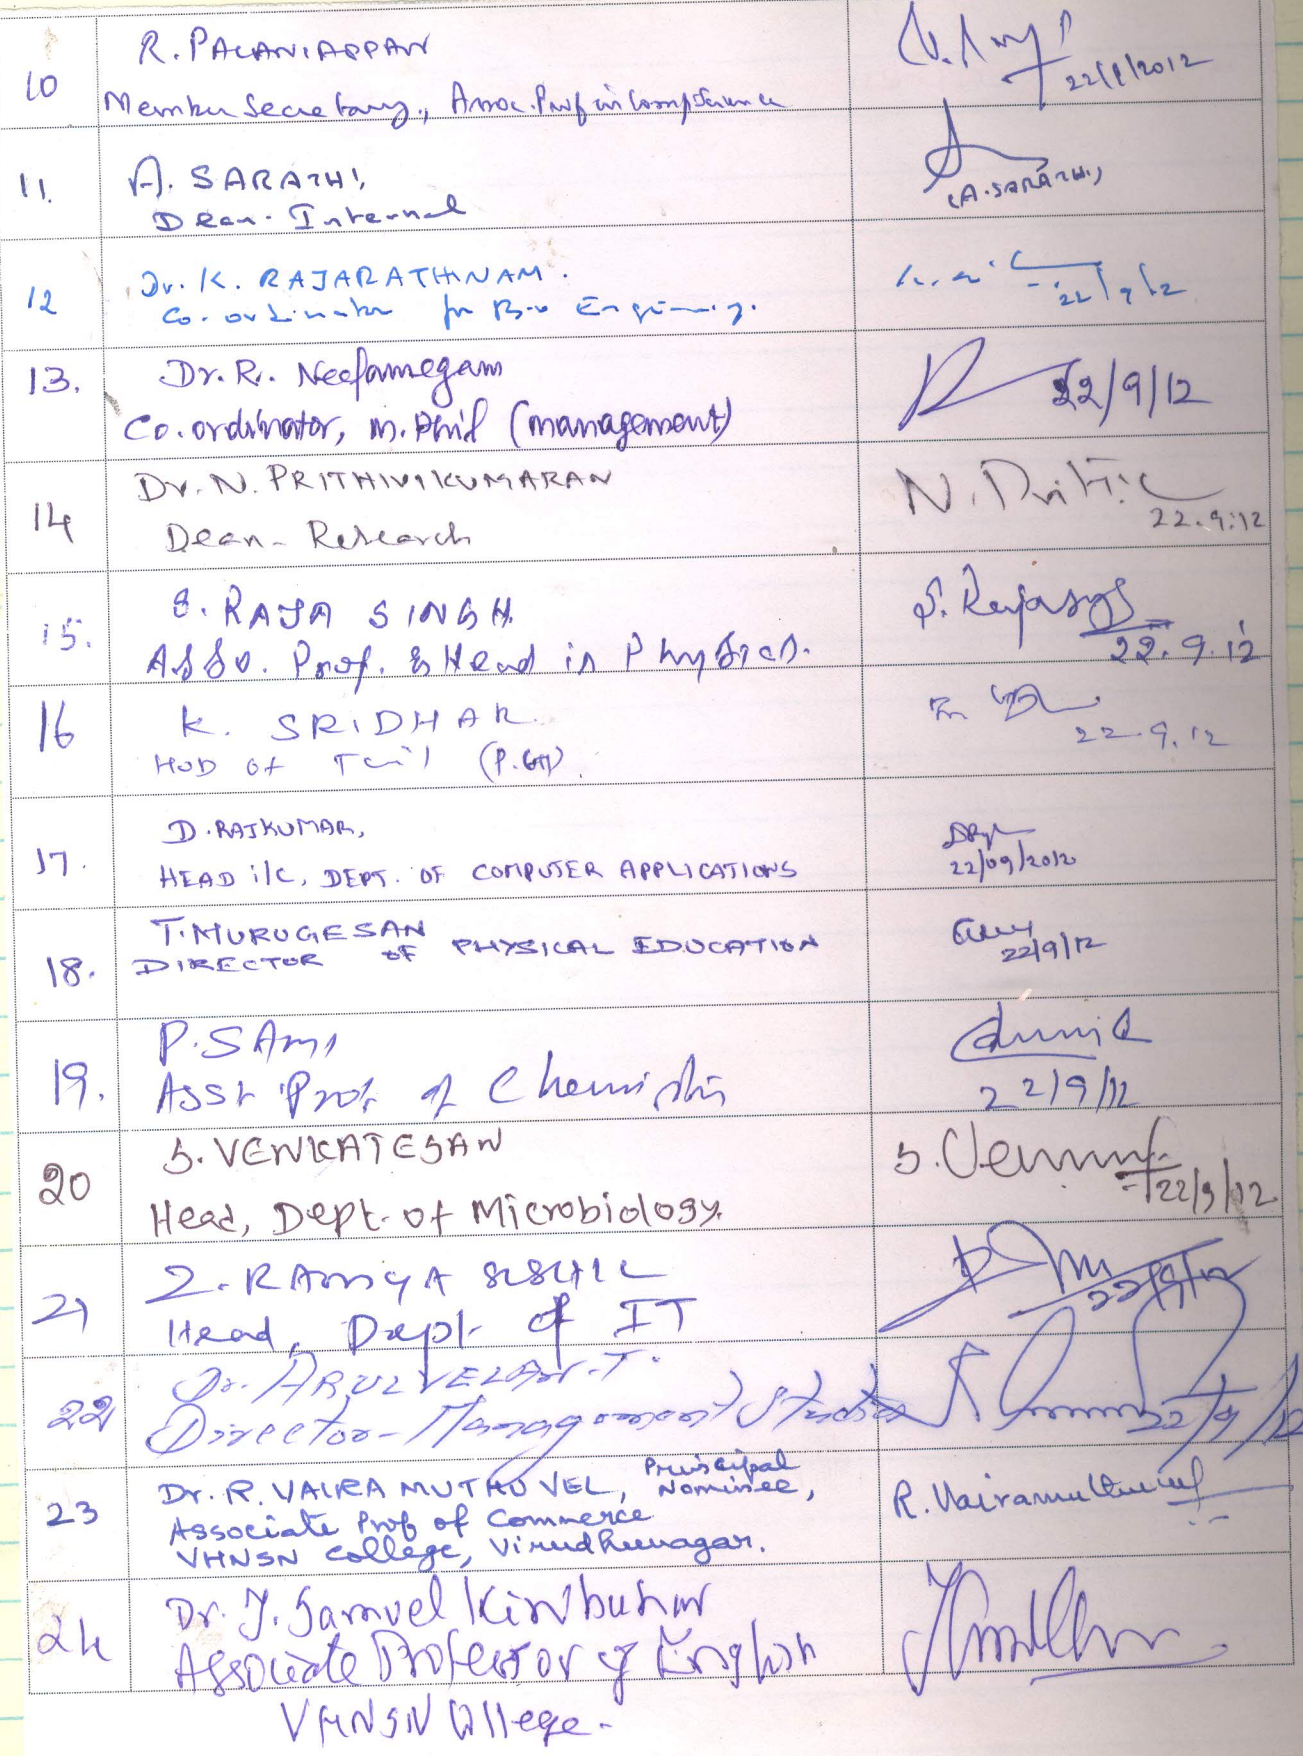 10
R. PALANIAPPAN
Member Secretary., Assoc. Prof in Comp Science
22/9/2012
11.
A. SARATHI,
Dean - Internal
(A. SARATHI)
12
Dr. K. RAJARATHINAM.
Co-ordinator for Bio Engineering.
22/9/12
13.
Dr. R. Neelamegam
Co.ordinator, M.Phil (Management)
22/9/12
14
Dr. N. PRITHIVIKUMARAN
Dean - Research
N.
22.9.12
15.
S. RAJA SINGH.
Asso. Prof. & Head in Physics.
S. Rajasingh
22.9.12
16
K. SRIDHAR.
HOD of Tamil
22.9.12
17.
D. RAJKUMAR,
HEAD i/c, DEPT. OF COMPUTER APPLICATIONS
22/09/2012
18.
T. MURUGESAN
DIRECTOR OF PHYSICAL EDUCATION
22/9/12
19.
P. SAMI
Asst Prof. of Chemistry
22/9/12
20
S. VENKATESAN
Head, Dept. of Microbiology.
S.
22/9/12
21
RAMYA
Head, Dept. of IT
22/9/12
22
Dr. ARULVELAN.T.
Director - Management Studies
22/9/12
23
Dr. R. VAIRAMUTHUVEL, Principal Nominee,
Associate Prof of Commerce
VHNSN College, Virudhunagar.
R. Vairamuthuvel
24
Dr. J. Samuel Kirubahar
Associate Professor of English
VHNSN College.